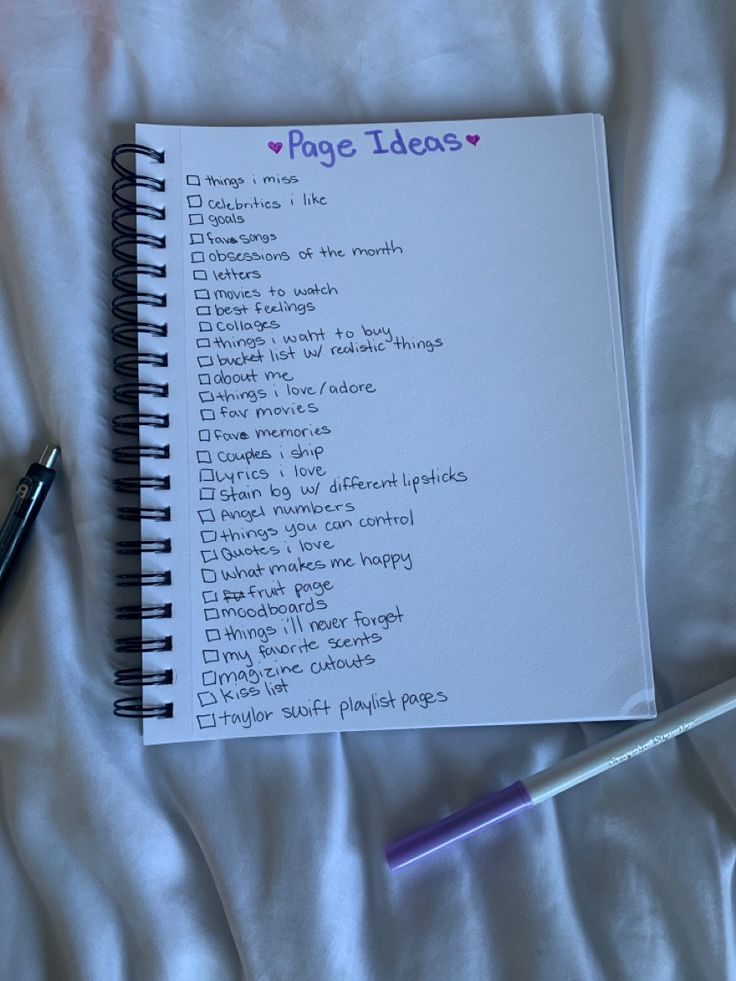 Page Ideas
things i miss
celebrities i like
goals
fave songs
obsessions of the month
letters
movies to watch
best feelings
collages
things i want to buy
bucket list w/ realistic things
about me
things i love/adore
fav movies
fave memories
couples i ship
Lyrics i love
stain bg w/ different lipsticks
Angel numbers
things you can control
Quotes i love
what makes me happy
fruit page
moodboards
things i'll never forget
my favorite scents
magizine cutouts
kiss list
taylor swift playlist pages